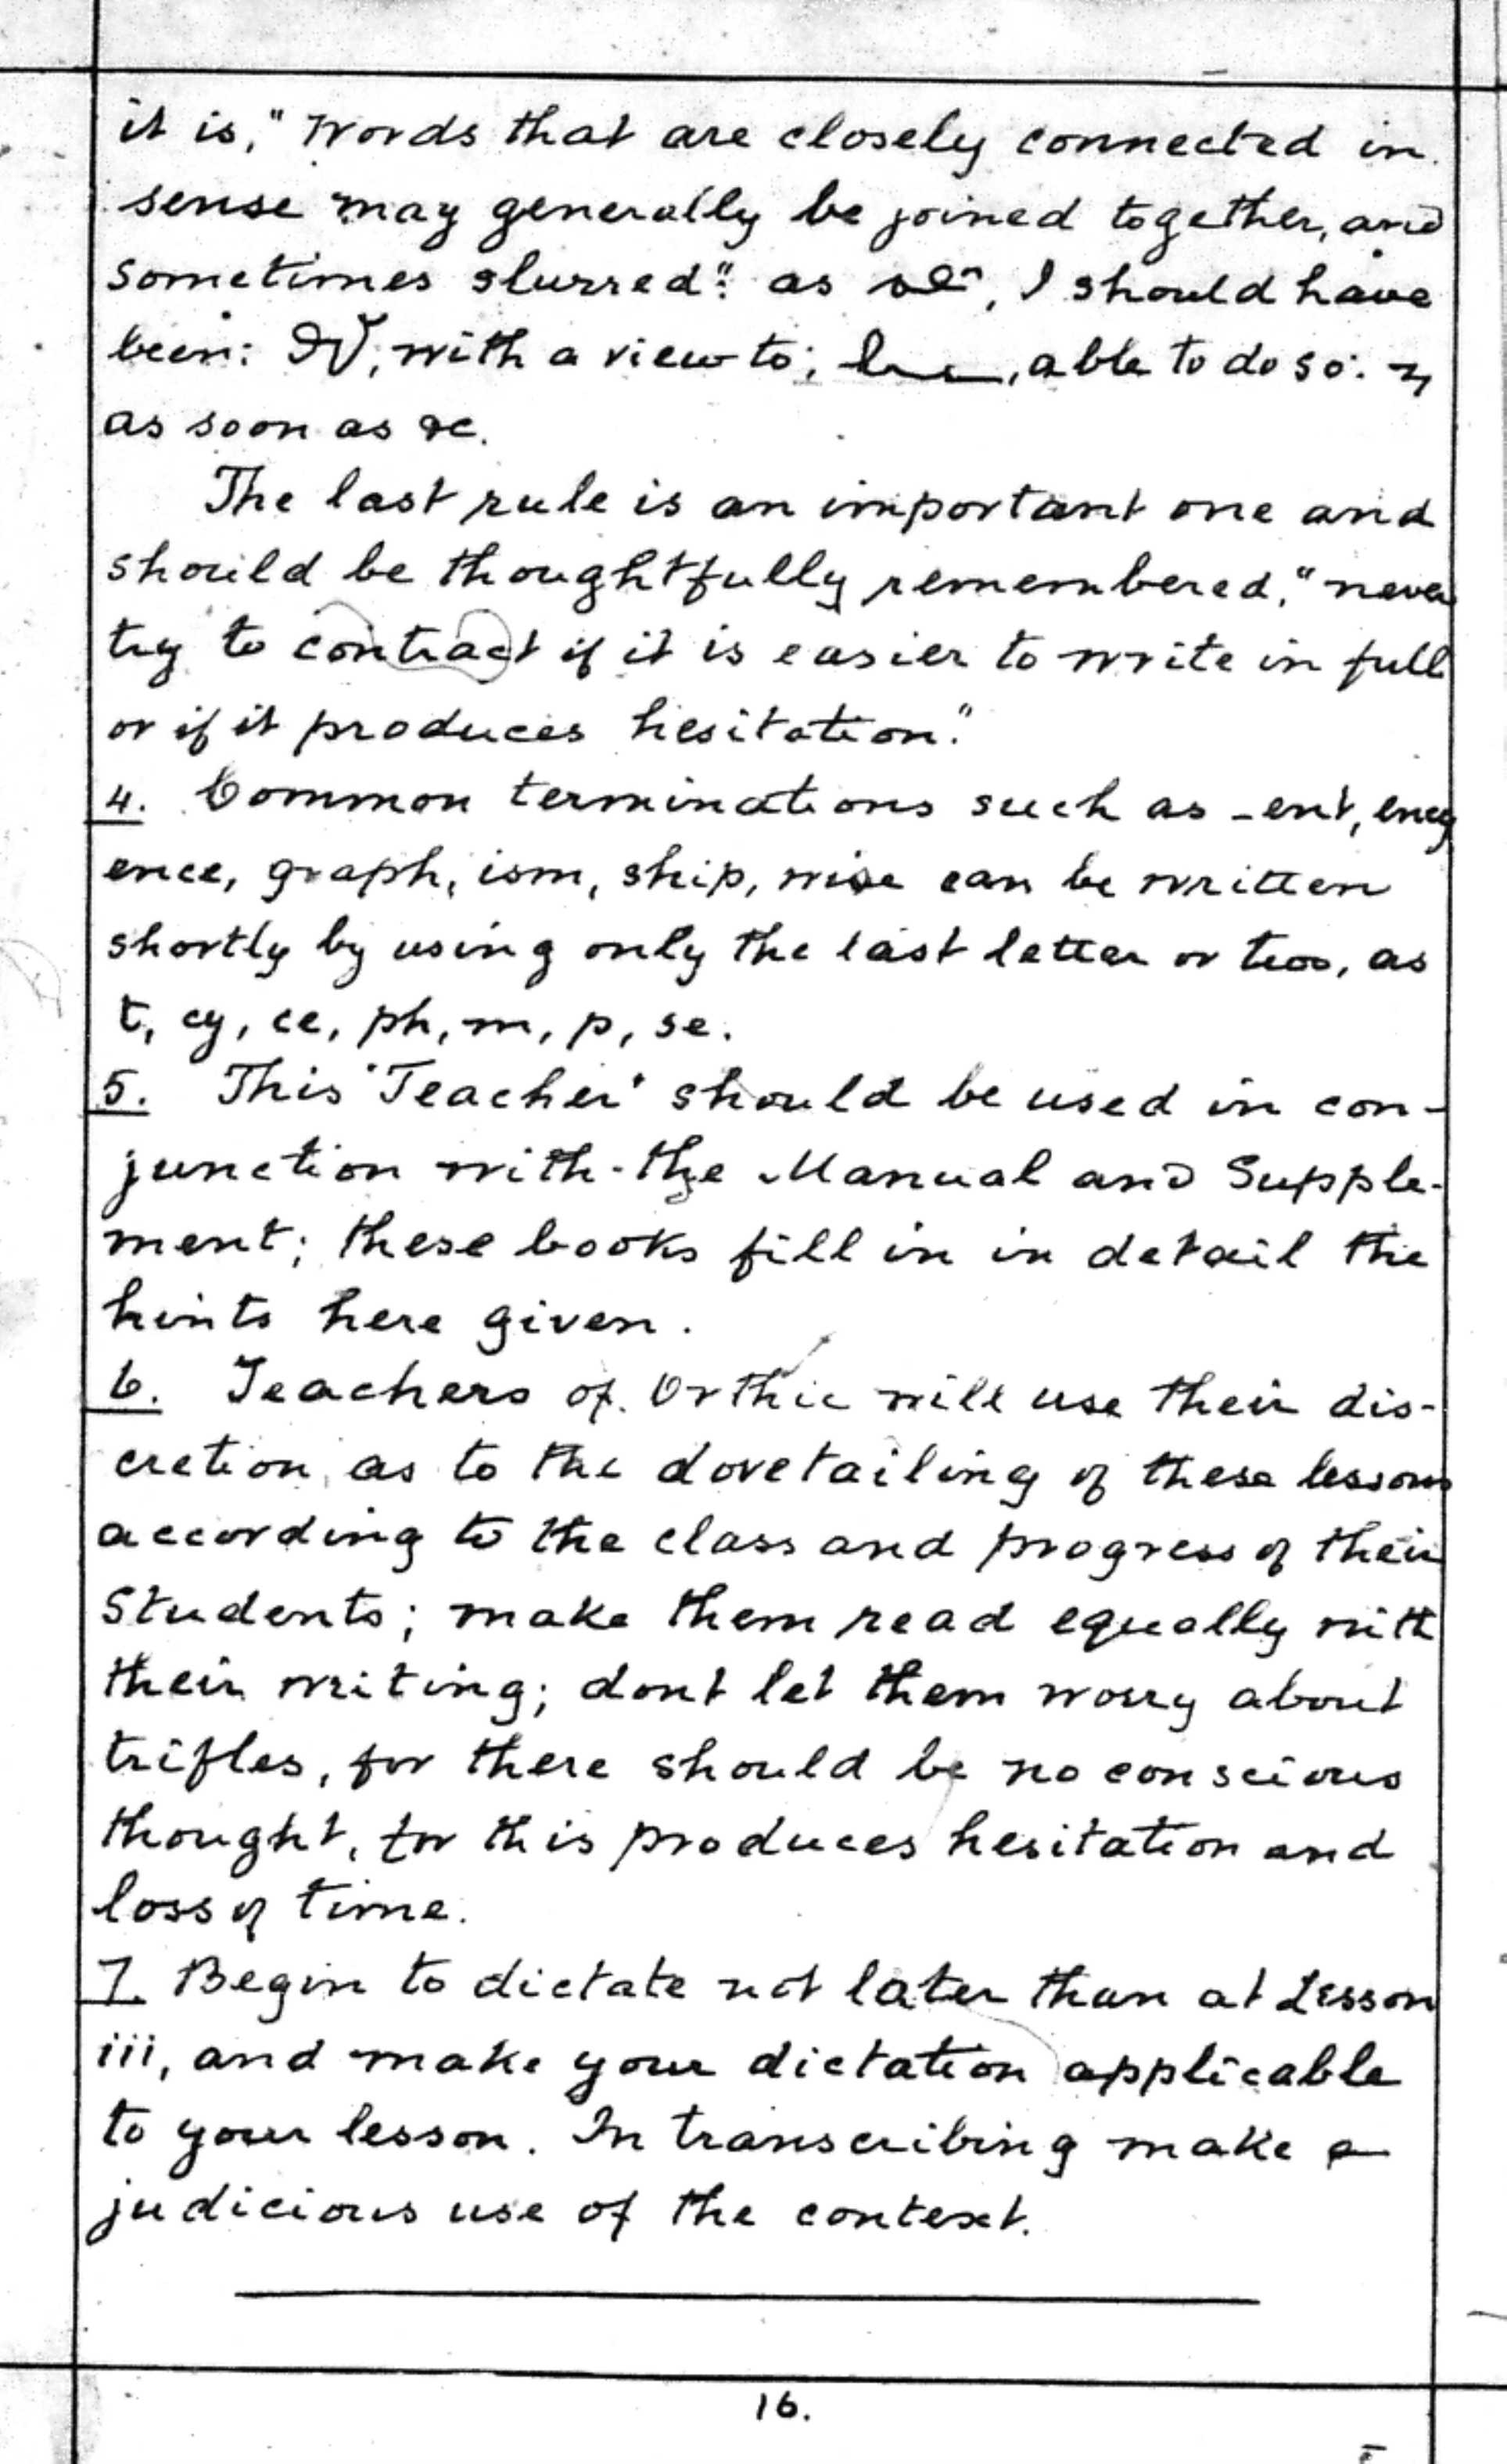 it is, "Words that are closely connected in
sense may generally be joined together, and
sometimes slurred": as , I should have
been: , with a view to; , able to do so:
as soon as &c.
The last rule is an important one and
should be thoughtfully remembered, "never
try to contract if it is easier to write in full
or if it produces hesitation."
4. Common terminations such as -ent, ency
ence, graph, ism, ship, wise can be written
shortly by using only the last letter or two, as
t, cy, ce, ph, m, p, se.
5. This 'Teacher' should be used in con-
junction with the Manual and Supple-
ment; these books fill in in detail the
hints here given.
6. Teachers of Orthic will use their dis-
cretion as to the dovetailing of these lessons
according to the class and progress of their
students; make them read equally with
their writing; dont let them worry about
trifles, for there should be no conscious
thought, for this produces hesitation and
loss of time.
7. Begin to dictate not later than at Lesson
iii, and make your dictation applicable
to your lesson. In transcribing make a
judicious use of the context.
16.